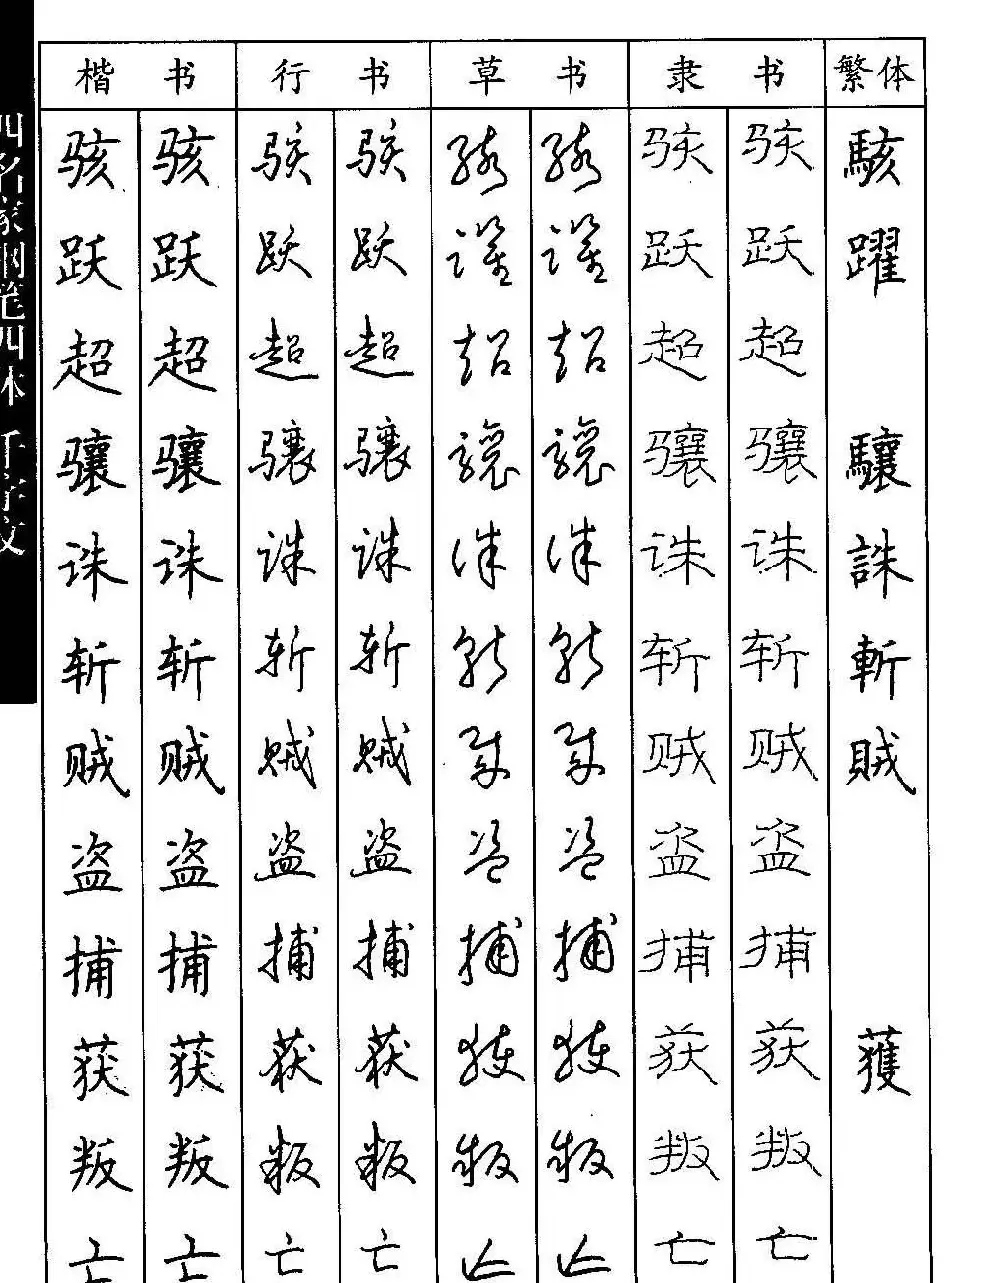 楷书 行书 草书 隶书 繁体
骇 骇 骇 骇 骇 骇 骇 骇 駭
跃 跃 跃 跃 跃 跃 跃 跃 躍
超 超 超 超 超 超 超 超
骧 骧 骧 骧 骧 骧 骧 骧 驤
诛 诛 诛 诛 诛 诛 诛 诛 誅
斩 斩 斩 斩 斩 斩 斩 斩 斬
贼 贼 贼 贼 贼 贼 贼 贼 賊
盗 盗 盗 盗 盗 盗 盗 盗
捕 捕 捕 捕 捕 捕 捕 捕
获 获 获 获 获 获 获 获 獲
叛 叛 叛 叛 叛 叛 叛 叛
亡 亡 亡 亡 亡 亡 亡 亡
四名家钢笔四体 千字文